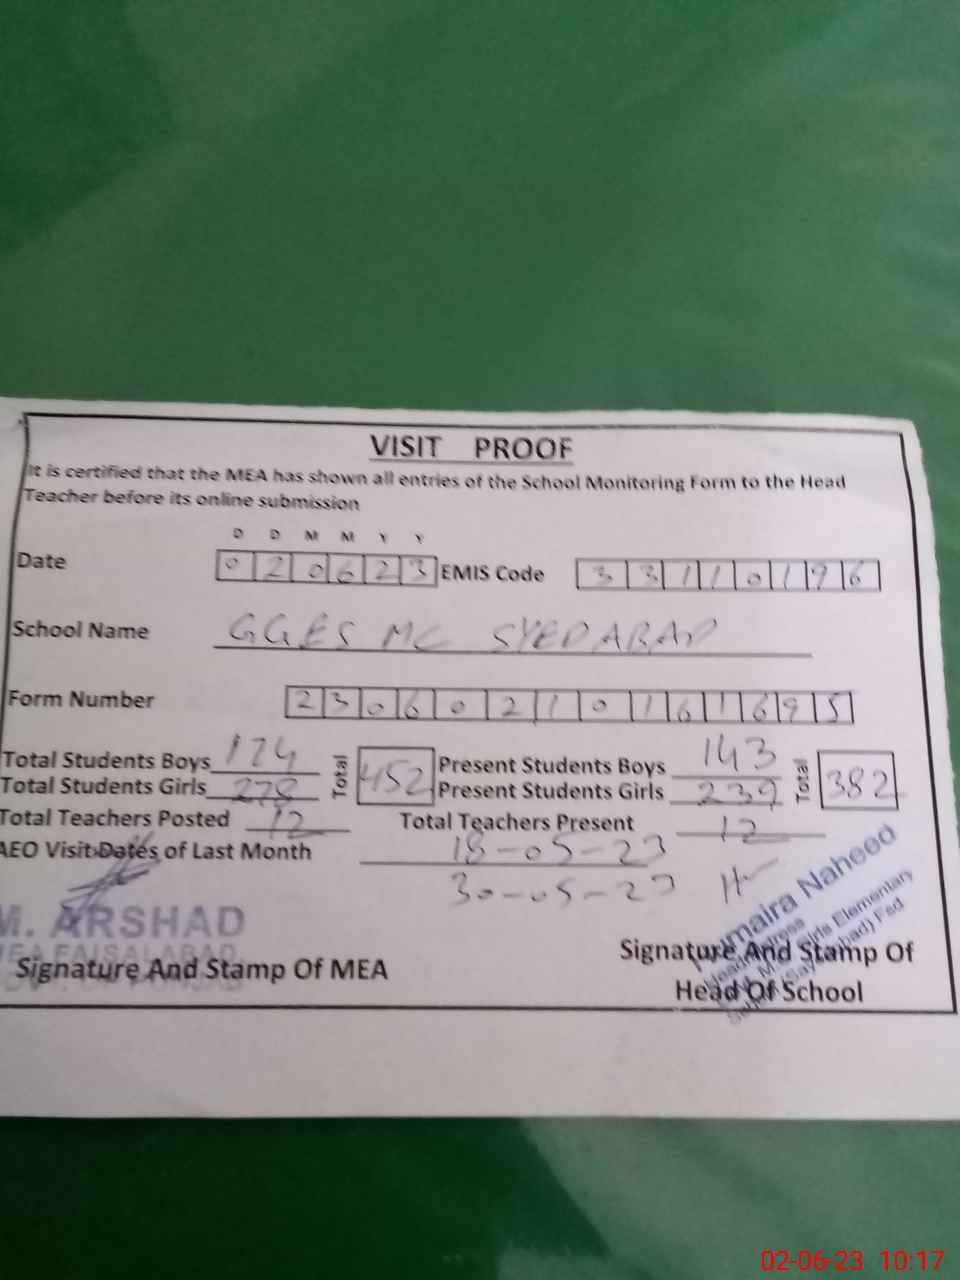 VISIT PROOF
It is certified that the MEA has shown all entries of the School Monitoring Form to the Head
Teacher before its online submission
D D M M Y Y
Date 020623 EMIS Code 33110196
School Name GGES MC SYEDABAD
Form Number 23060210161695
Total Students Boys 174 Total 452 Present Students Boys 143 Total 382
Total Students Girls 278 Present Students Girls 239
Total Teachers Posted 12 Total Teachers Present 12
AEO Visit Dates of Last Month 18-05-23
30-05-23
M. ARSHAD
MEA FAISALABAD
Signature And Stamp Of MEA
Naheed
Girls Elementary
Fsd
Signature And Stamp Of
Head Of School
02-06-23 10:17